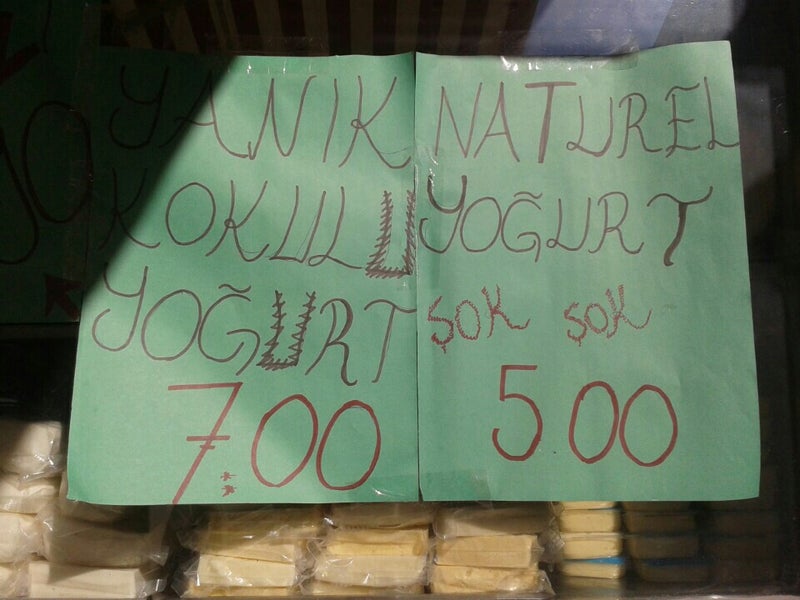 YANIK
KOKULU
YOĞURT
7.00
NATUREL
YOĞURT
ŞOK ŞOK
5.00